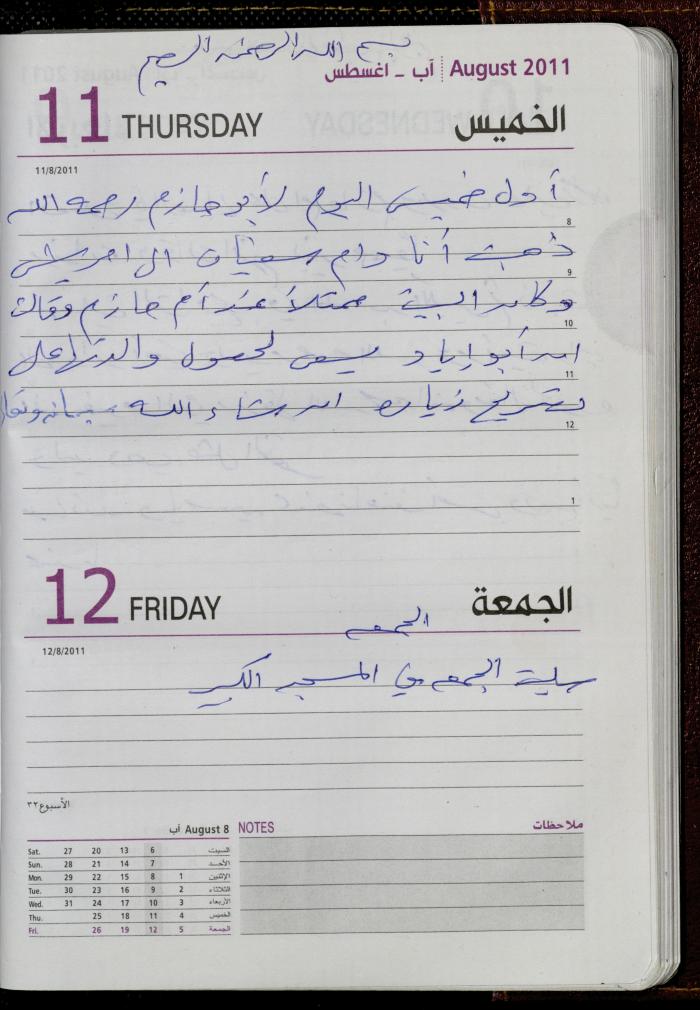 بسم الله الرحمن الرحيم
آب - اغسطس August 2011
11 THURSDAY الخميس
11/8/2011
أول خميس اليوم لأبو حازم رحمه الله
8
ذهبت أنا وام سفيان الى
9
وكان البيت ممتلأ عند أم حازم وقالت
10
ان أبو اياد يسعى لحصول والدتها على
11
تصريح زيارة ان شاء الله
12
1
12 FRIDAY الجمعة
12/8/2011
الجمعه
صلية الجمعه في المسجد الكبير
الأسبوع ٣٢
August 8 آب
NOTES ملاحظات
Sat. 27 20 13 6 السبت
Sun. 28 21 14 7 الأحد
Mon. 29 22 15 8 1 الإثنين
Tue. 30 23 16 9 2 الثلاثاء
Wed. 31 24 17 10 3 الأربعاء
Thu. 25 18 11 4 الخميس
Fri. 26 19 12 5 الجمعة